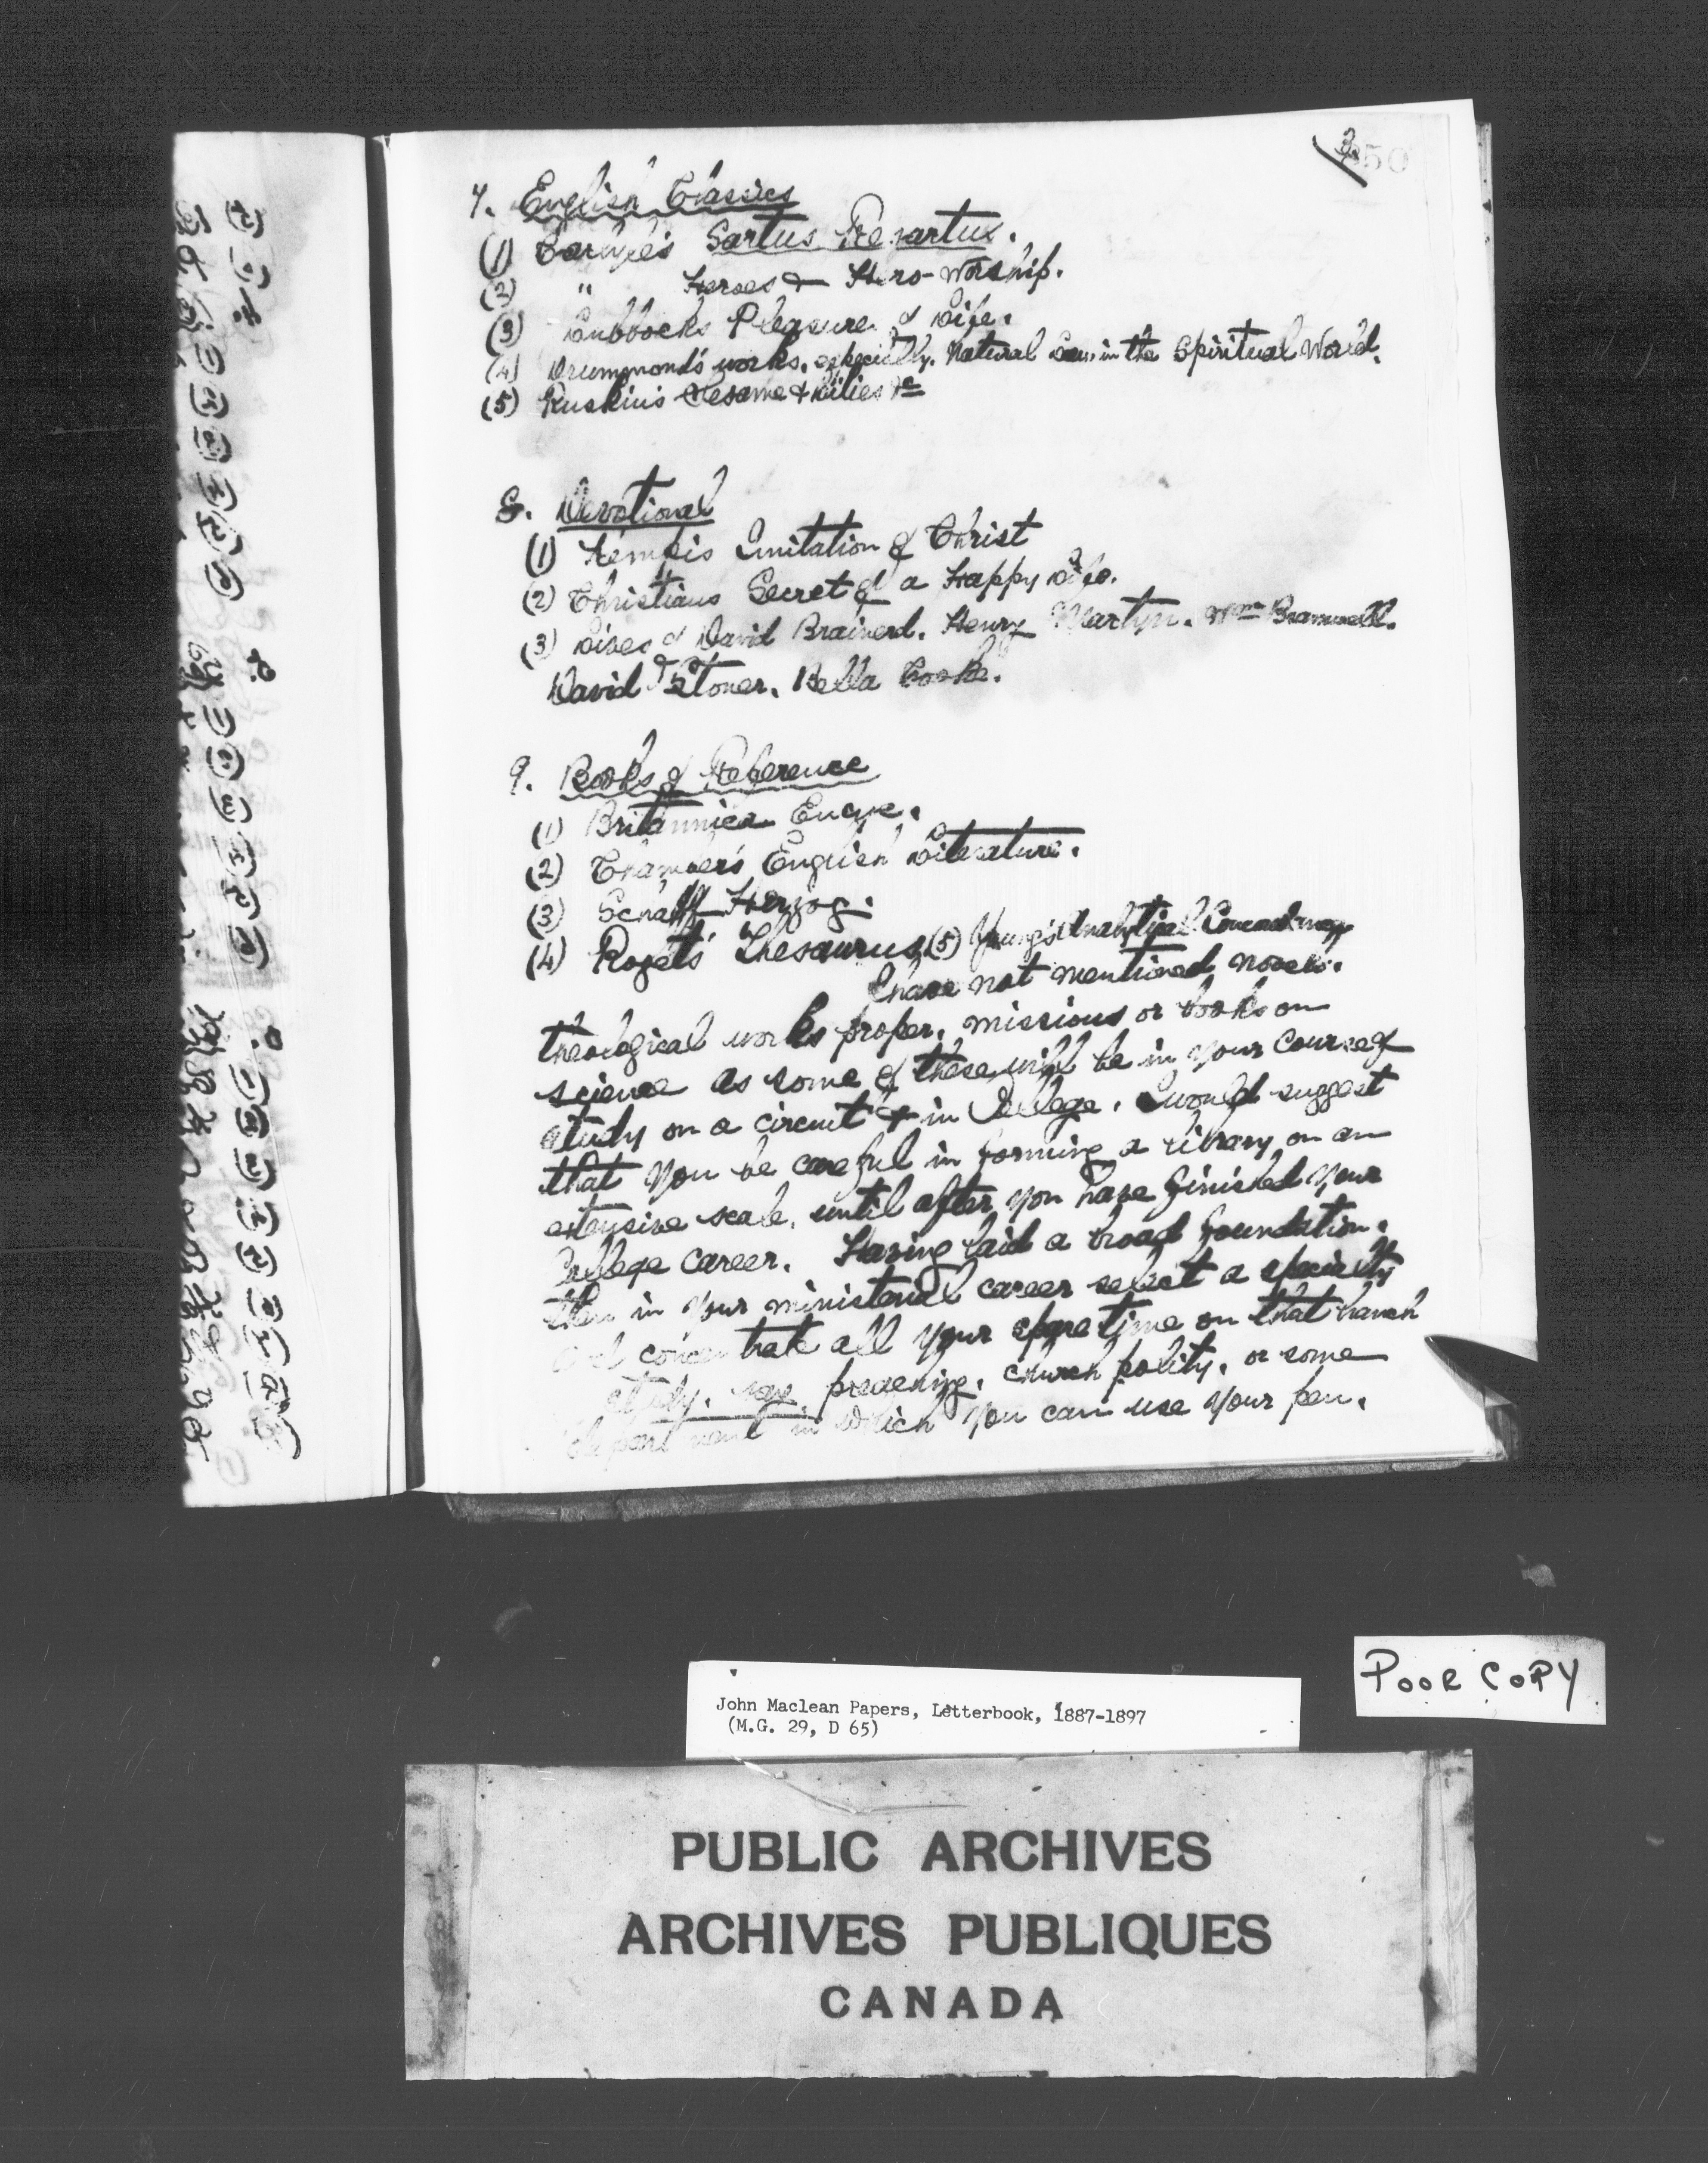 3
350
7. English Classics
(1) Carlyle's Sartus Resartus.
(2) " Heroes & Hero-Worship.
(3) Lubbock's Pleasure of Life.
(4) Drummond's works, especially, Natural Law in the Spiritual World.
(5) Ruskin's Sesame & Lilies &c
8. Devotional
(1) Kempis Imitation of Christ
(2) Christians Secret of a Happy Life.
(3) Lives of David Brainerd. Henry Martyn. Wm Bramwell.
David Stoner. Bella Cooke.
9. Books of Reference
(1) Britannica Ency.
(2) Chamber's English Literature.
(3) Schaff-Herzog.
(4) Roget's Thesaurus (5) Young's Analytical Concordance
I have not mentioned novels.
theological works proper, missions or books on
science as some of these will be in your course of
study on a circuit & in College. I would suggest
that you be careful in forming a library on an
extensive scale, until after you have finished your
College career. Having laid a broad foundation.
then in your ministerial career select a specialty
and concentrate all your spare time on that branch
study, say, preaching, church polity, or some
department in which you can use your pen.
POOR COPY
John Maclean Papers, Letterbook, 1887-1897
(M.G. 29, D 65)
PUBLIC ARCHIVES
ARCHIVES PUBLIQUES
CANADA